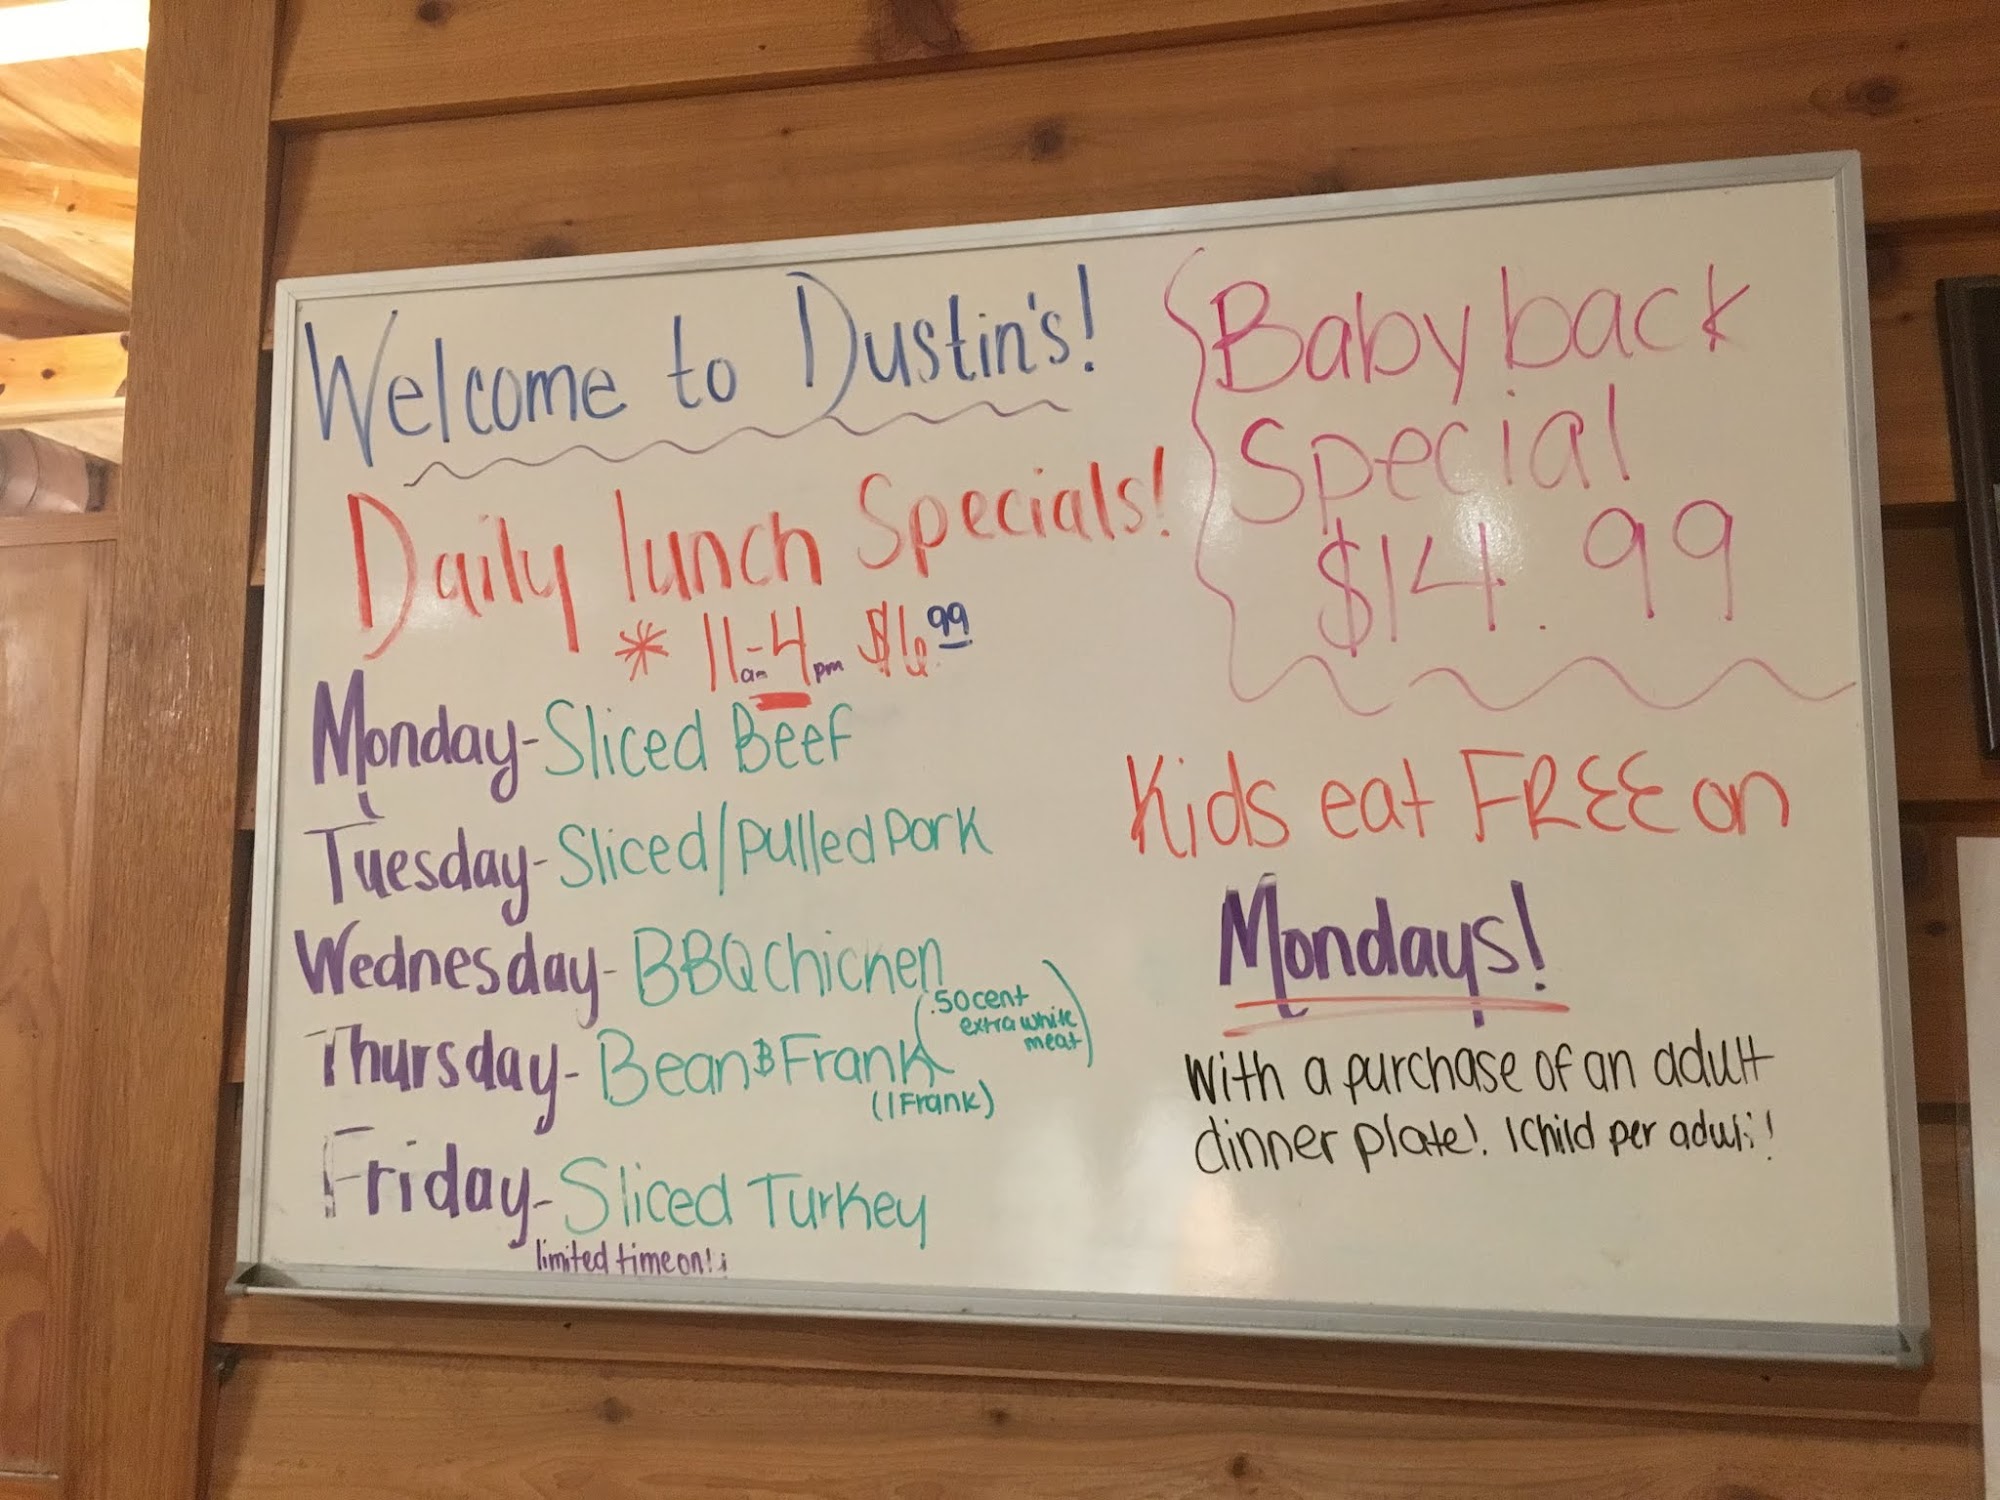 Welcome to Dustin's!
Daily lunch Specials!
* 11am-4pm $6.99
Monday-Sliced Beef
Tuesday-Sliced/Pulled Pork
Wednesday-BBQ Chicken
(.50cent
extra white
meat)
Thursday-Bean & Frank
(1 Frank)
Friday-Sliced Turkey
limited time
Baby back
Special
$14.99
Kids eat FREE on
Mondays!
With a purchase of an adult
dinner plate! 1 Child per adult!